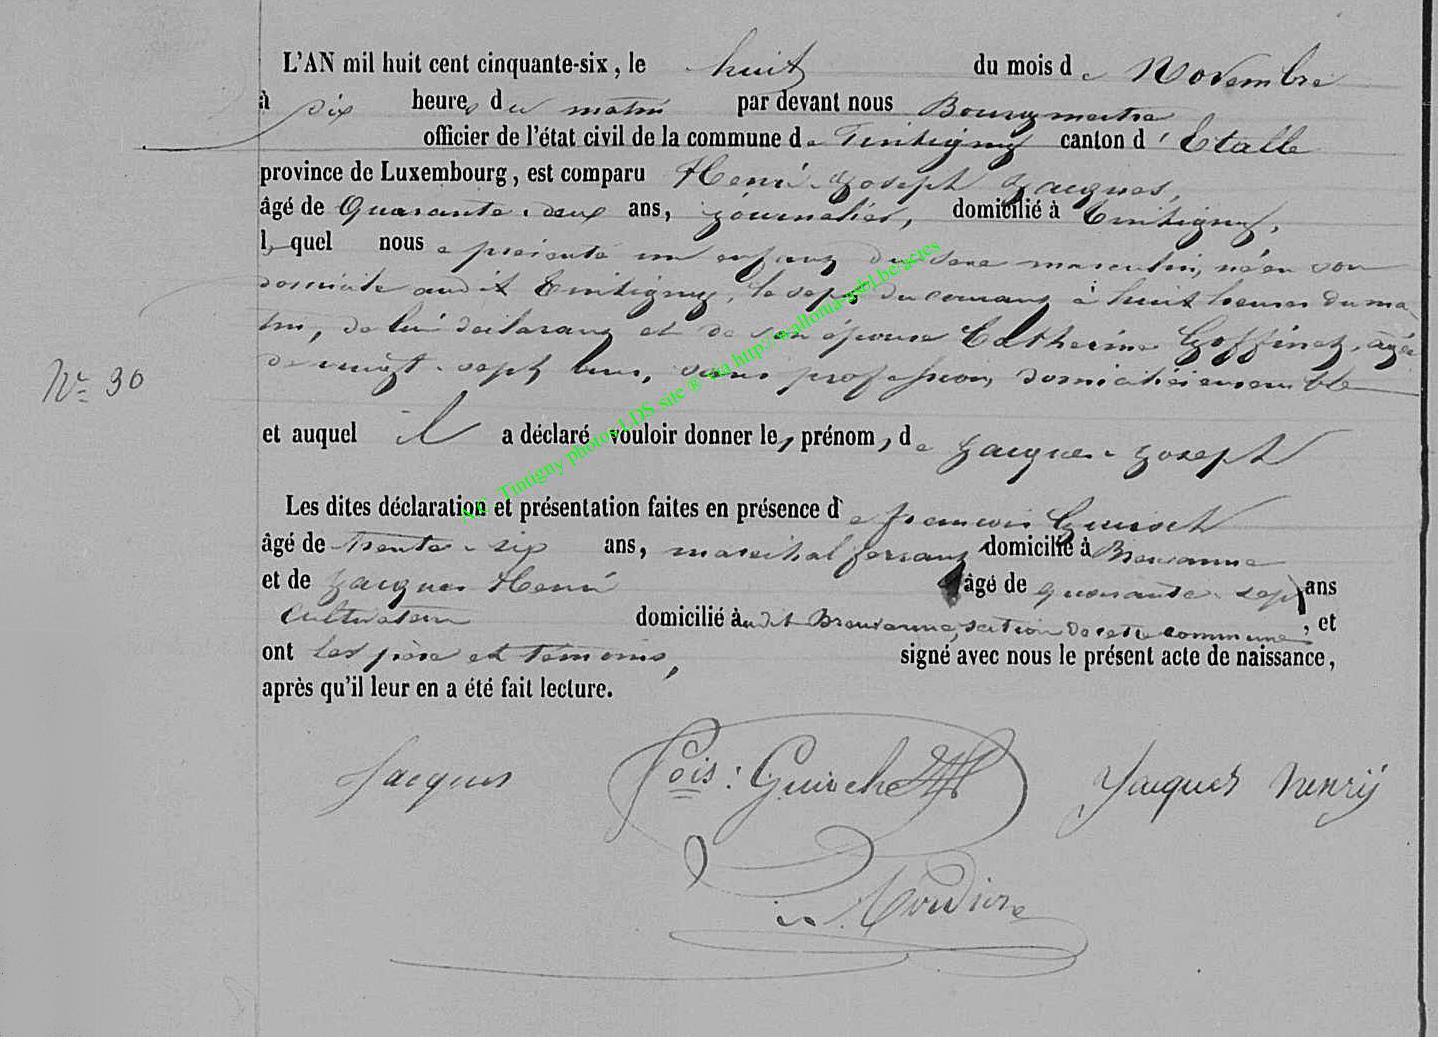 L'AN mil huit cent cinquante-six, le huit du mois de Novembre
à dix heures du matin par devant nous Bourgmestre
officier de l'état civil de la commune de Tintigny canton d'Etalle
province de Luxembourg, est comparu Henri-Joseph Jacques,
âgé de Quarante-deux ans, journalier, domicilié à Tintigny,
lequel nous a présenté un enfant du sexe masculin, né en son
domicile audit Tintigny, le sept du courant à huit heures du ma-
tin, de lui déclarant et de son épouse Catherine Goffinet, agée
de vingt-sept ans, sans profession, domiciliés ensemble
N° 30
et auquel il a déclaré vouloir donner les prénoms de Jacques-Joseph
Les dites déclaration et présentation faites en présence de françois Guirsch
âgé de trente-six ans, maréchal ferrant domicilié à Breuvanne
et de Jacques Henri âgé de quarante-sept ans
Cultivateur domicilié audit Breuvanne, section de cette commune, et
ont les père et témoins, signé avec nous le présent acte de naissance,
après qu'il leur en a été fait lecture.
Jacques fçois: Guirsch Jacques henrÿ
A.C. Tintigny photos LDS site ® via http://wallonia-asbl.be/actes